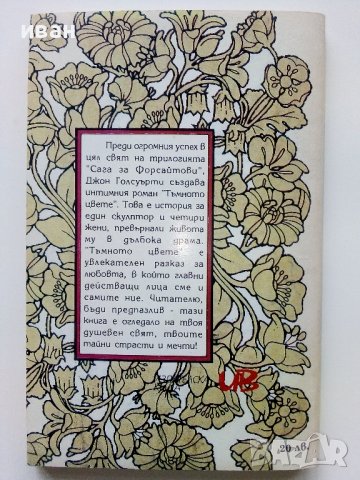 иван
Преди огромния успех в
цял свят на трилогията
"Сага за Форсайтови",
Джон Голсуърти създава
интимния роман "Тъмното
цвете". Това е история за
един скулптор и четири
жени, превърнали живота
му в дълбока драма.
"Тъмното цвете" е
увлекателен разказ за
любовта, в който главни
действащи лица сме и
самите ние. Читателю,
бъди предпазлив - тази
книга е огледало на твоя
душевен свят, твоите
тайни страсти и мечти!
20 лв.
BAZAR